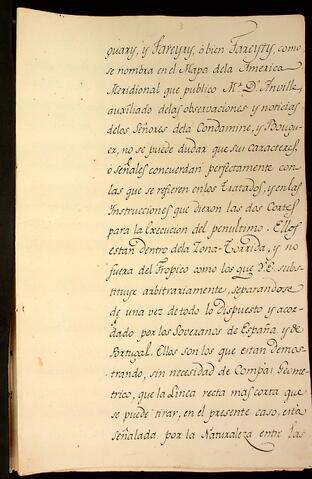 guary, y Jareyry, ó bien Jareyty, como
se nombra en el Mapa dela America
Meridional que publico Mr. D'Anville,
auxiliado delas observaciones y noticias
delos Señores dela Condamine, y Bougu-
er, no se puede dudar que sus caracteres,
ó señales concuerdan perfectamente con
las que se refieren en los Tratados, y en las
Instrucciones que dieron las dos Cortes
para la Execucion del penultimo. Ellos
estàn dentro dela Zona-Torrida, y no
fuera del Tropico como los que V.E. subs-
tituye arbitrariamente, separandose
de una vez de todo lo dispuesto y acor-
dado por los Soveranos de España, y de
Portugal. Ellos son los que estan demos-
trando, sin necesidad de Compàs Geome-
trico, que la Linea recta mas corta que
se puede tirar, en el presente caso, està
señalada por la Naturaleza entre las